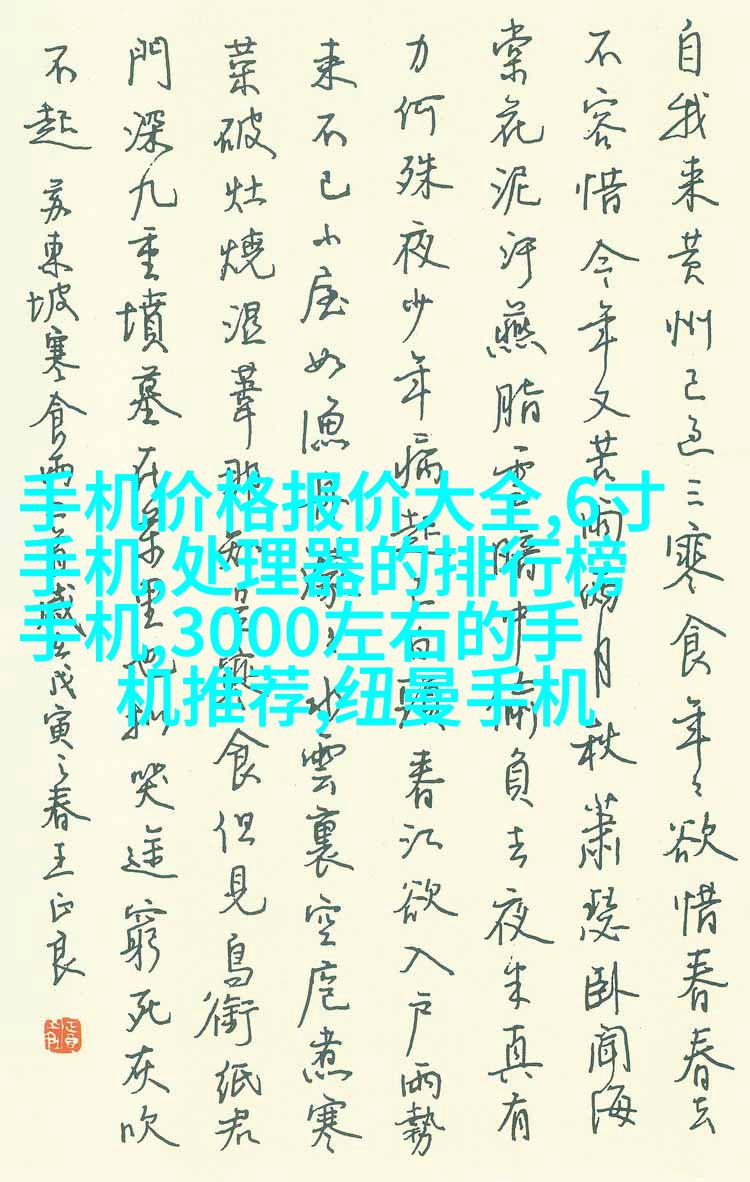 自我来黄州已过三寒食年々欲惜春春去
不容惜今年又苦雨两月秋蕭瑟卧闻海
棠花泥汙燕脂雪暗中偷負去夜半真有
力何殊夜少年病起百頭春江欲入户雨勢
来不已小屋如漁舟濛々水雲裏空庖煮寒
菜破灶燒湿葦那知是寒食但見烏銜纸君
門深九重墳墓在萬里也拟哭途窮死灰吹
不起 蘇東坡寒食雨二首歲在戊寅之春王正良
手机价格报价大全,6寸
手机,处理器的排行榜
手机,3000左右的手
机推荐,纽曼手机